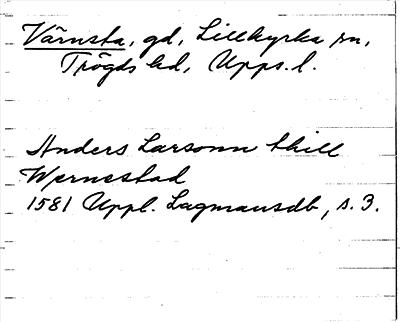 Värnsta, gd, Lillkyrka sn,
Trögds hd, Upps. l.
Anders Larsonn thill
Wernestad
1581 Uppl. Lagmansdb, s. 3.